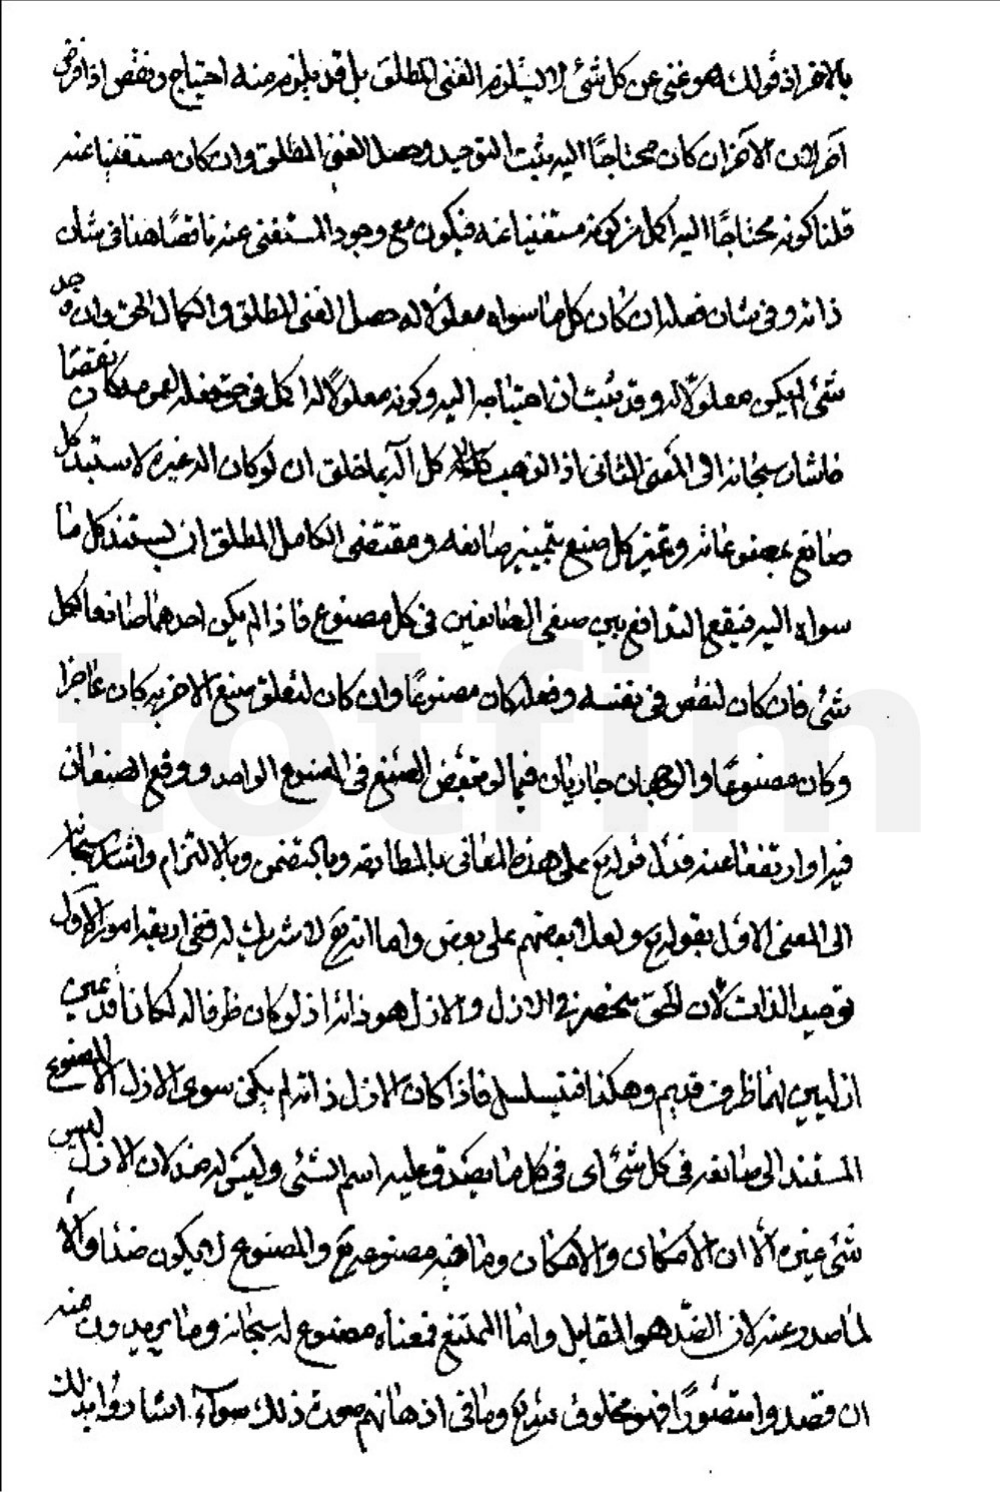 بالاخر اذ قولك هو غنى عن كل شئ لا يستلزم الغنى المطلق بل قد يلزم منه احتياج ونقص اذا فرض
اخر لان الاخر ان كان محتاجًا اليه يثبت التوحيد وحصل الغنى المطلق وان كان مستغنيا عنه
قلنا كونه محتاجًا اليه اكمل من كونه مستغنيا عنه فيكون مع وجود المستغنى عنه ناقصًا هذا فى شان
ذاته وفى شان فعله ان كان كل ما سواه معلولا له حصل الغنى المطلق والكمال الحق وان وجد
شئ لم يكن معلولا له وقد يثبت ان احتياجه اليه وكونه معلولًا له اكمل فى حق فعله لعمومه كان نقصًا
فاشار سبحانه الى المعنى الثانى اذا لذهب كل اله بما خلق ان لو كان اله غيره لاستبد كل
صانع بمصنوعاته وتميز كل صنع بتمييز صانعه ومقتضى الكامل المطلق ان يستند كل ما
سواه اليه فيقع التدافع بين صنعى الصانعين فى كل مصنوع فاذا لم يكن احدهما صانعا لكل
شئ فان كان لنقص فى نفسه وفعله كان مصنوعًا وان كان لتعلق صنع الاخر به كان عاجزا
وكان مصنوعًا والوجهان جاريان فيما لو تبعض الصنع فى المصنوع الواحد ووقع الصنعان
فيه او ارتفعا عنه فدل قوله تع على هذه المعانى بالمطابقة وبالتضمن وبالالتزام واشار سبحانه
الى المعنى الاول بقوله تع ولعلا بعضهم على بعض واما انه تع لا شريك له فخى اربعة امور الاول
توحيد الذات لان الحق منحصر فى الازل والازل هو ذاته اذ لو كان ظرفا له لكانا قديمين
ازليين لهما ظرف قديم وهكذا فتسلسل فاذا كان الازل ذاته لم يكن سوى الازل الا المصنوع
المستند الى صانعه فى كل شئ اى فى كل ما يصدق عليه اسم الشئ وليس له ضد لان الازل ليس
شئ غيره الا ان الامكان والامكان وما فيه مصنوعه تع والمصنوع لا يكون ضدا والا
لما صدر عنه لان الضد هو المقابل واما الممتنع فمعناه مصنوع له سبحانه وما يريدون منه
ان قصدوا متصورًا فهو مخلوق لله تع وما فى اذهانهم صورة ذلك سواء اشاروا بذلك
totfim